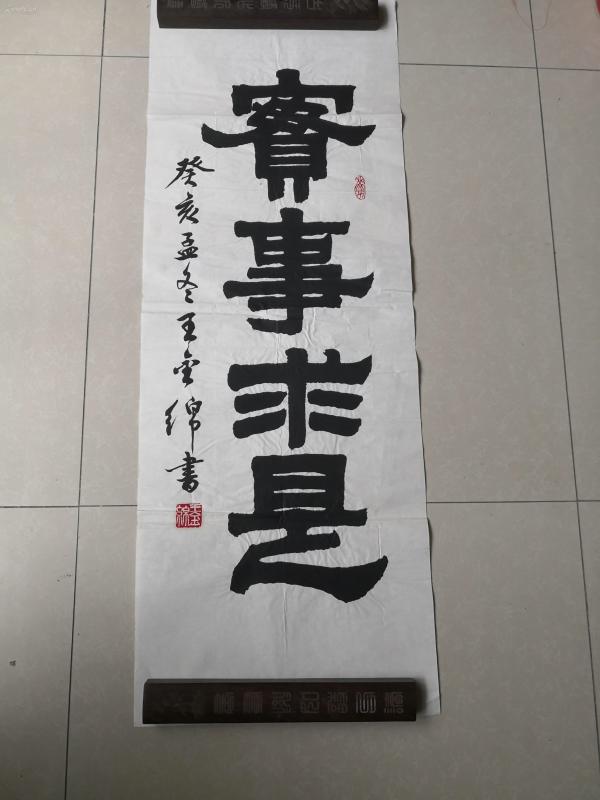 實事求是
癸亥孟冬王金綿書